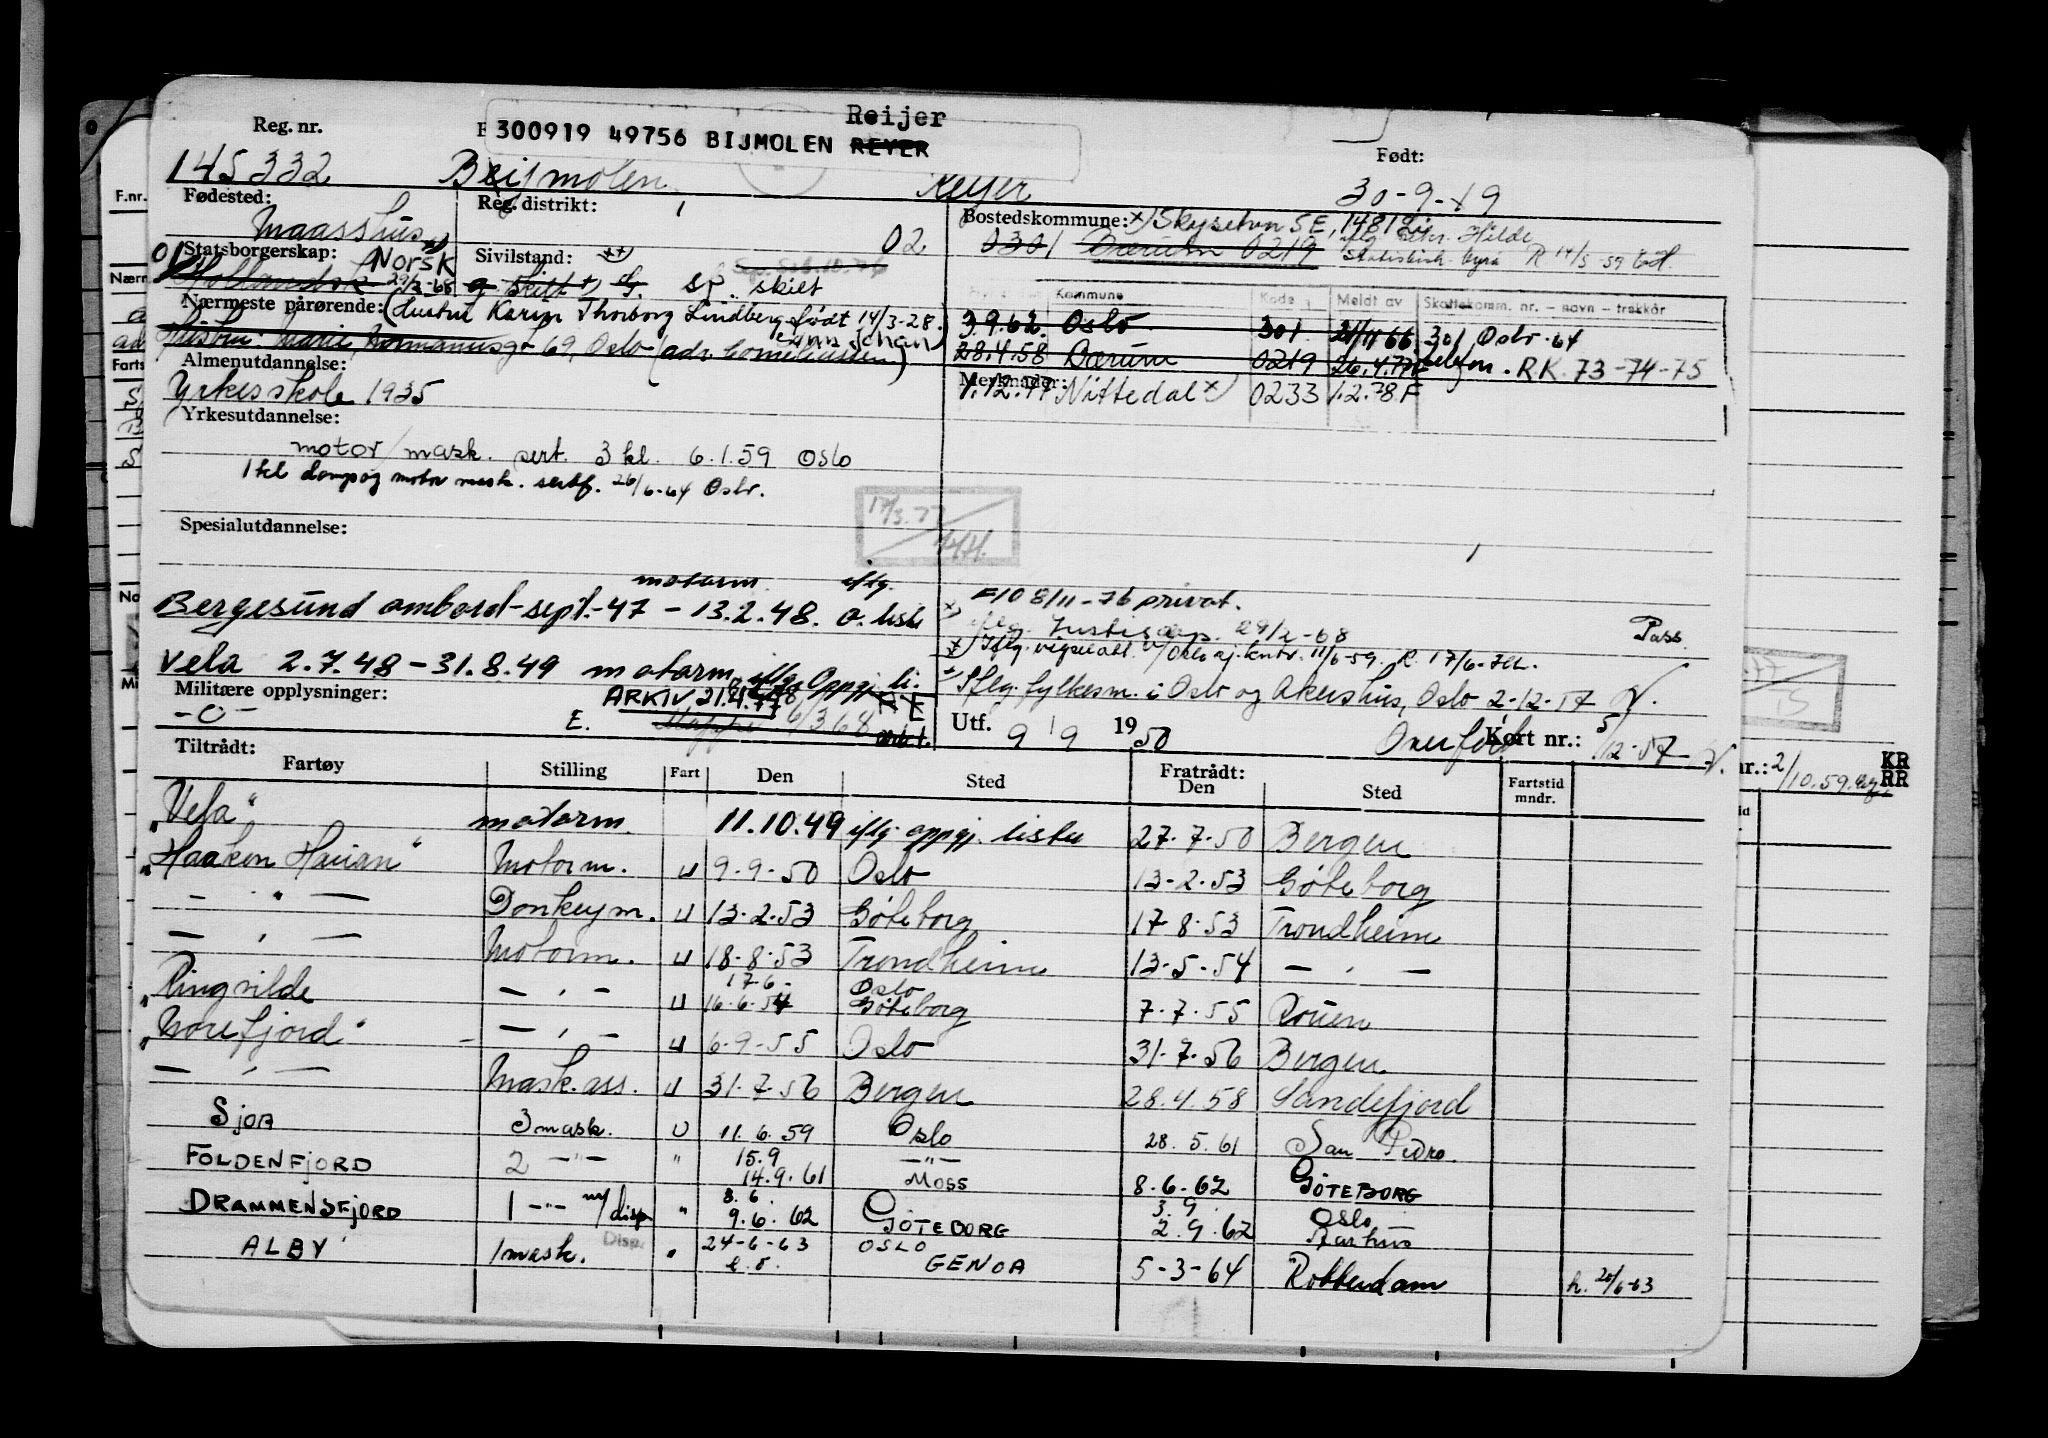 Reijer
Reg. nr.
300919 49756 BIJMOLEN REYER
Født:
145332 Bijmolen Reijer 30-9-19
Fødested:
Reg. distrikt:
Bostedskommune: x) Skysetvn 5E, 1481 Li
Maasshus
02
0301 Bærum 0219
iflg. Hilde
Statistisk byrå R 14/5-59
01
Statsborgerskap:
Norsk
Sivilstand:
Hollandsk 29/2-68
g. skilt s. sp. skilt
Nærmeste pårørende: (Hustru Karin Thorborg Lindberg født 14/3-28.)
Kommune Kode Meldt av Skattekomm. nr. – navn – trekkår
3.9.62. Oslo 301 21/11 66 301, Oslo-64
Hustru: Marie, Hermanusg. 69, Oslo
28.4.58 Bærum 0219 26.4.77
RK 73-74-75
Almenutdannelse:
Merknader:
1.12.77 Nittedal x) 0233 1.2.78 F
Yrkesskole 1935
Yrkesutdannelse:
motor/mask. sert. 3 kl. 6.1.59 Oslo
1 kl damp og motor mask. sertf. 26/6-64 Oslo.
Spesialutdannelse:
17/3.77
motorm. iflg.
Bergesund ombord-sept.-47 - 13.2.48. o. liste
F10 8/11-76 privat.
iflg. Justisdep. 29/2-68
Pass
Iflg. vigselatt. Oslo 11/6-59. R. 17/6-
Vela 2.7.48-31.8.49 motorm. iflg. Oppgj. li.
Iflg. fylkesm. i Oslo og Akershus, Oslo 2-12-57
Militære opplysninger:
-0-
ARKIV, 21.4.77
E.
Mappe 6/3 68
Utf. 9/9 1950
Overført
Kort nr.: 5/12-57
Tiltrådt:
Fratrådt:
Fartøy Stilling Fart Den Sted Den Sted Fartstid mndr.
"Vela" motorm. 11.10.49 iflg. oppgj. liste 27-7-50 Bergen
"Haakon Hauan" Motorm. U 9-9-50 Oslo 13-2-53 Göteborg
- " - Donkeym. U 13-2-53 Göteborg 17-8-53 Trondheim
- " - Motorm. U 18-8-53 Trondheim 13-5-54 - " -
17-6- Oslo
Ringvilde - " - U 16-6-54 Göteborg 7-7-55 Rouen
"Norefjord" - " - U 6-9-55 Oslo 31-7-56 Bergen
- " - Mask. ass. U 31-7-56 Bergen 28.4.58 Sandefjord
Sjoa 3 mask. U 11.6.59 Oslo 28.5.61 San Pedro.
15.9 -"-
FOLDENFJORD 2 -"- " 14.9.61 MOSS 8-6-62 GÖTEBORG
8.6. 3.9. Oslo
DRAMMENSFJORD 1 -"- m/disp " 9.6.62 GÖTEBORG 2.9.62 Aarhus
Disp. 24-6-63 OSLO
ALBY 1 mask. " e.o. GENOA 5-3-64 Rotterdam h. 20/6-63
F.nr.
Nærm
Farts
nr.: 2/10.59.
KR
RR